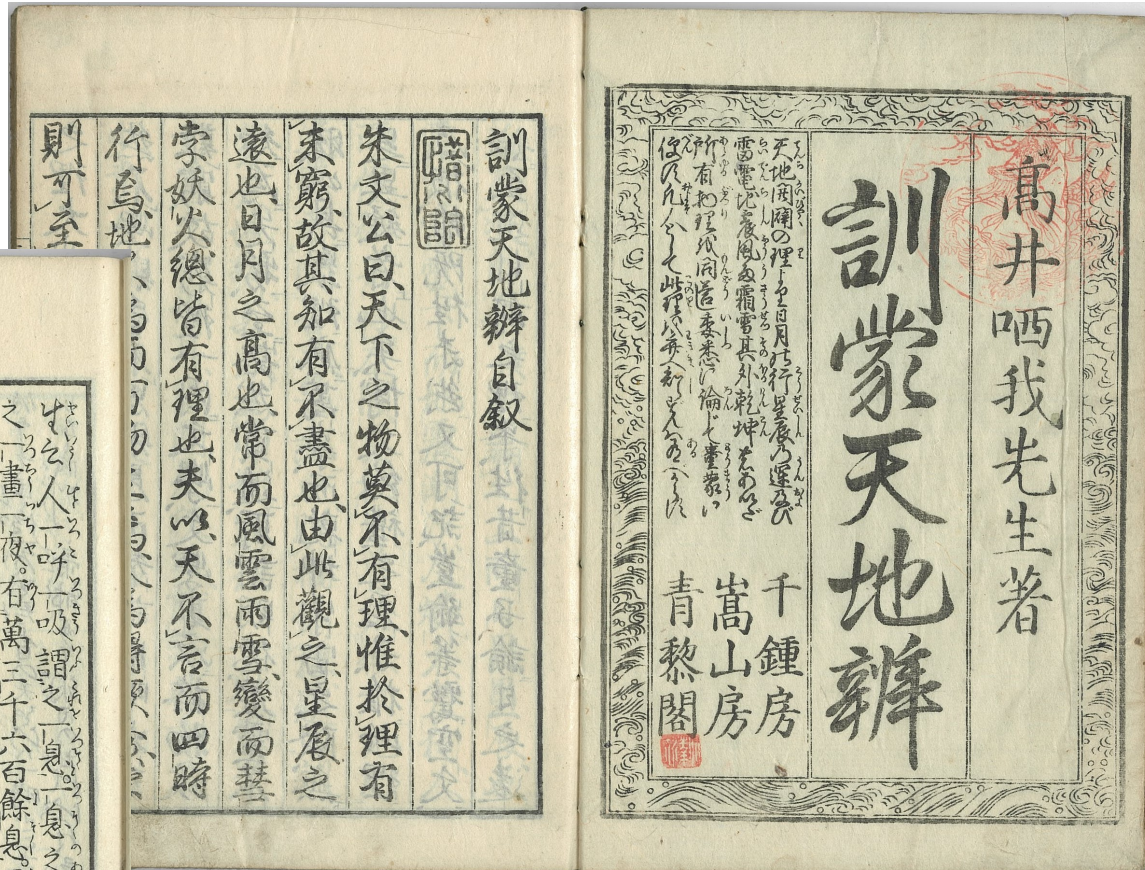 髙井哂我先生著
訓蒙天地辨
天地開闢の理より日月の行星辰乃運及び
雷電地震風雨霜雪其外乾坤
所有物理を問答委悉に論して童蒙に
千鍾房
嵩山房
青黎閣
訓蒙天地辦自叙
朱文公曰天下之物莫不有理惟於理有
未窮故其知有不盡也由此觀之星辰之
遠也日月之髙也常而風雲雨雪變而彗
孛妖火總皆有理也夫以天不言而四時
行焉地
則可至
生云人一呼一吸謂之一息一息之
之一晝一夜有萬三千六百餘息